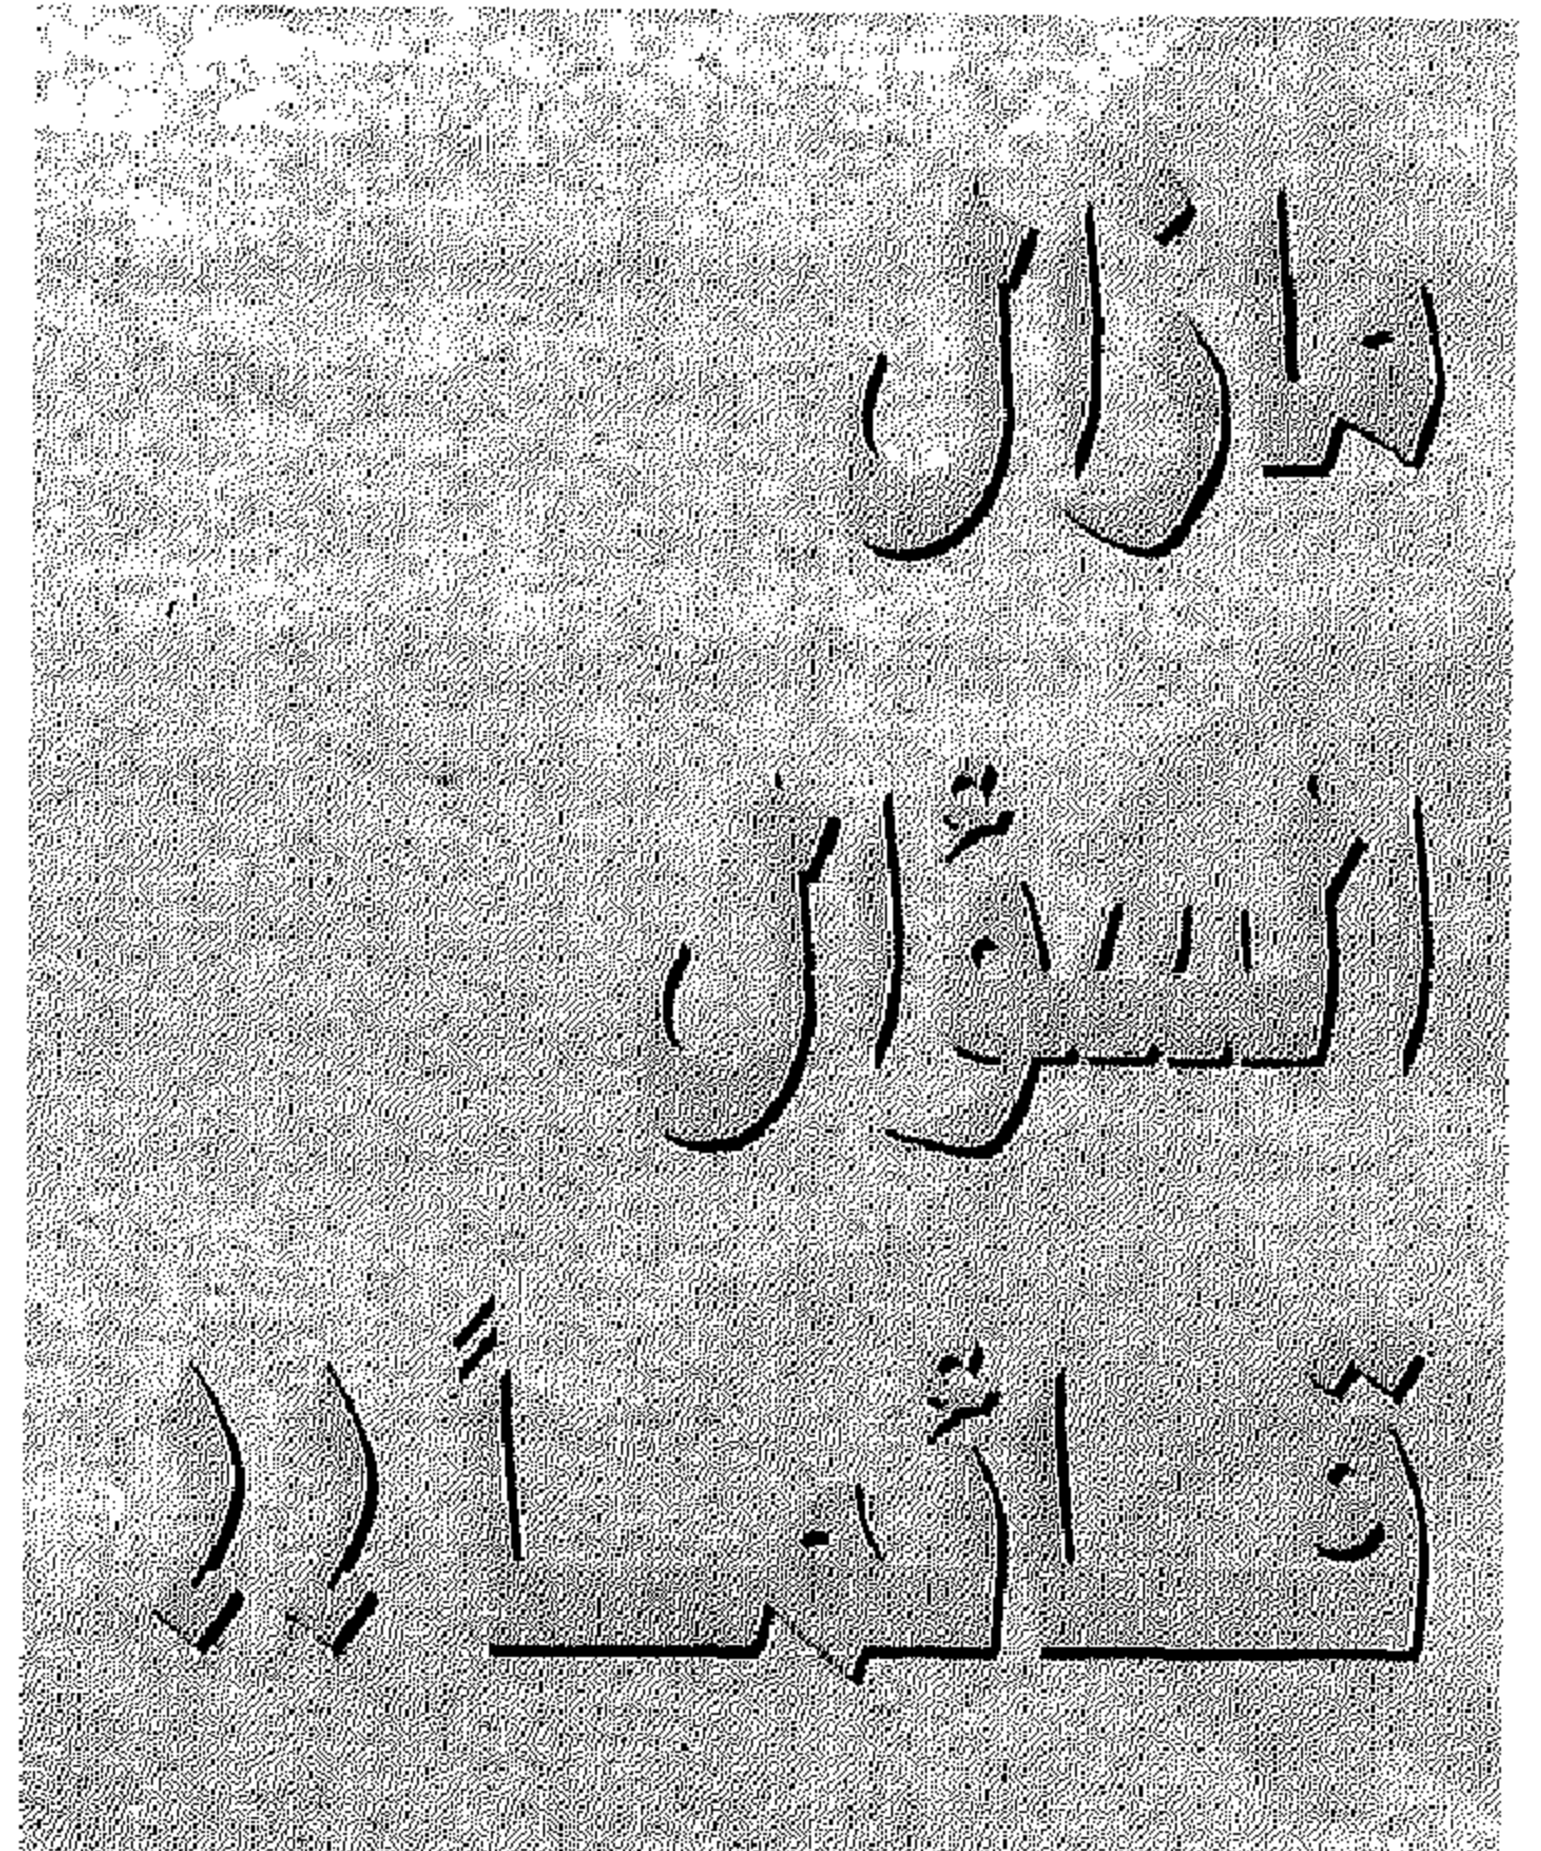 مازال
السؤال
قائماً !!